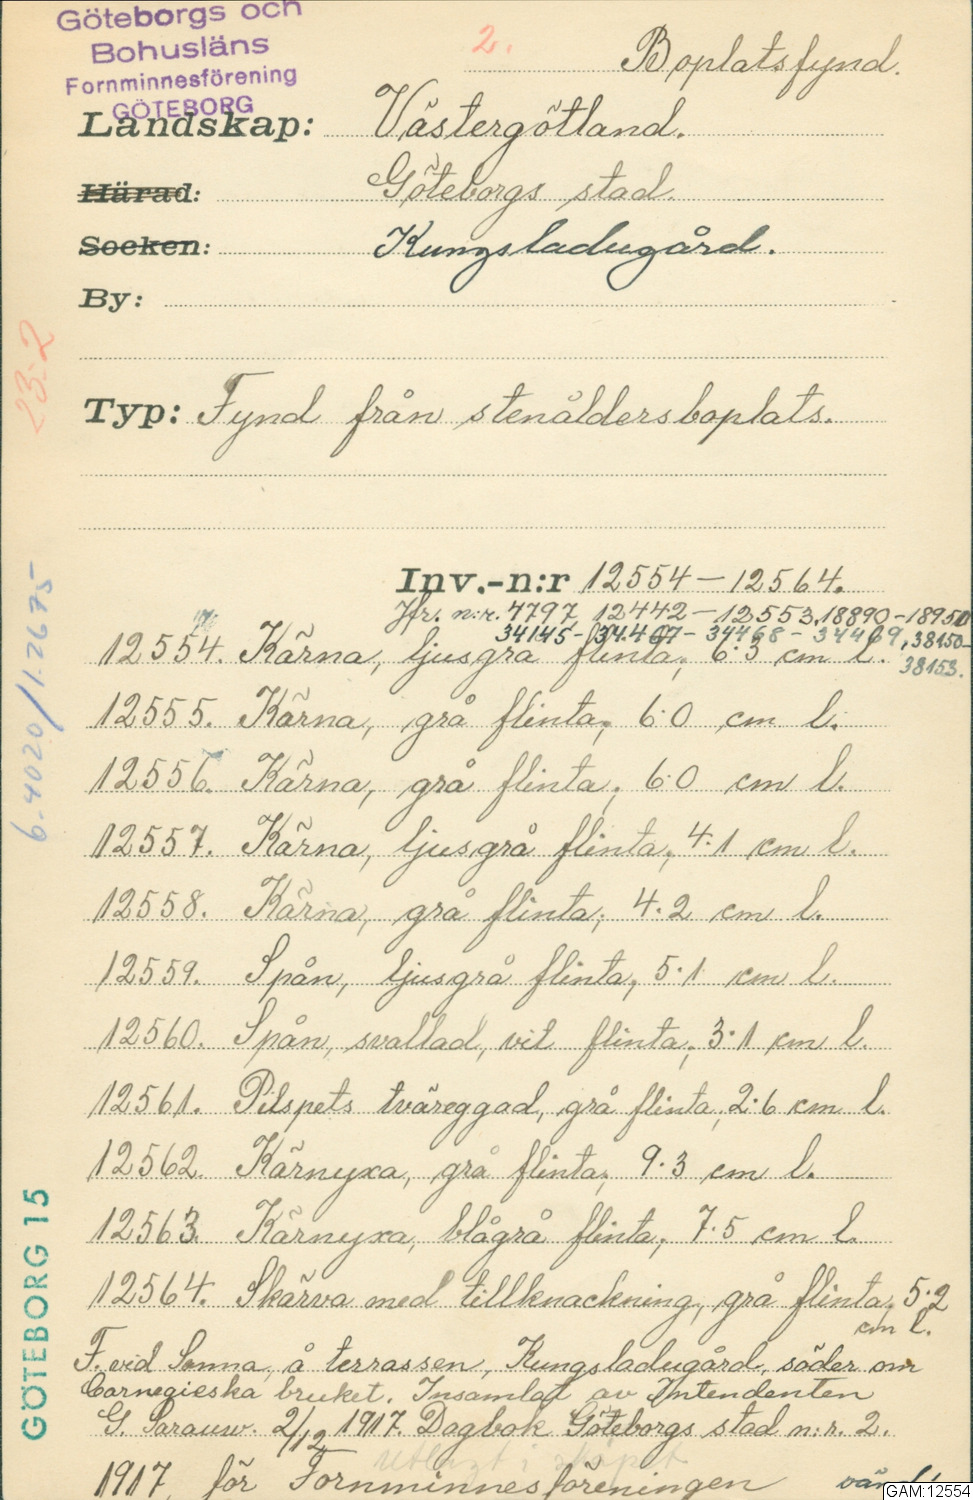 Göteborgs och
Bohusläns
Fornminnesförening
GÖTEBORG
2.
Boplatsfynd.
Landskap: Västergötland.
Härad: Göteborgs stad.
Socken: Kungsladugård.
By:
23:2
Typ: Fynd från stenåldersboplats.
Inv.-n:r 12554-12564.
Jfr. n:r. 4797, 12442-12553, 18890-18950
34145-34467-34468-34469, 38150-
38153.
12554. Kärna, ljusgrå flinta, 6.3 cm l.
12555. Kärna, grå flinta, 6.0 cm l.
12556. Kärna, grå flinta, 6.0 cm l.
12557. Kärna, ljusgrå flinta, 4.1 cm l.
12558. Kärna, grå flinta, 4.2 cm l.
12559. Spån, ljusgrå flinta, 5.1 cm l.
12560. Spån, svallad, vit flinta, 3.1 cm l.
12561. Pilspets tväreggad, grå flinta, 2.6 cm l.
12562. Kärnyxa, grå flinta, 9.3 cm l.
12563. Kärnyxa, blågrå flinta, 7.5 cm l.
12564. Skärva med tillknackning, grå flinta, 5.2
cm l.
F. vid Sanna, å terrassen, Kungsladugård, söder om
Carnegieska bruket. Insamlat av Intendenten
G. Sarauw. 2/12 1917. Dagbok Göteborgs stad n:r. 2.
1917, för Fornminnesföreningen vänd!
6.4020/1.2675
GÖTEBORG 15
GAM:12554